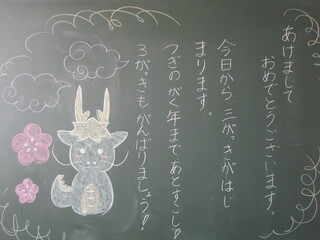 あけまして
おめでとうございます。
今日から三がっきがはじ
まります。
つぎのがく年まであとすこし!
3がっきもがんばりましょう!